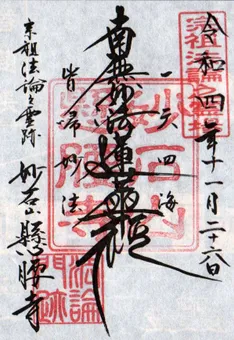 令和四年十一月二十六日
一天四海
南無妙法蓮華経
皆帰妙法
宗祖法論之霊跡
妙石山 懸腰寺